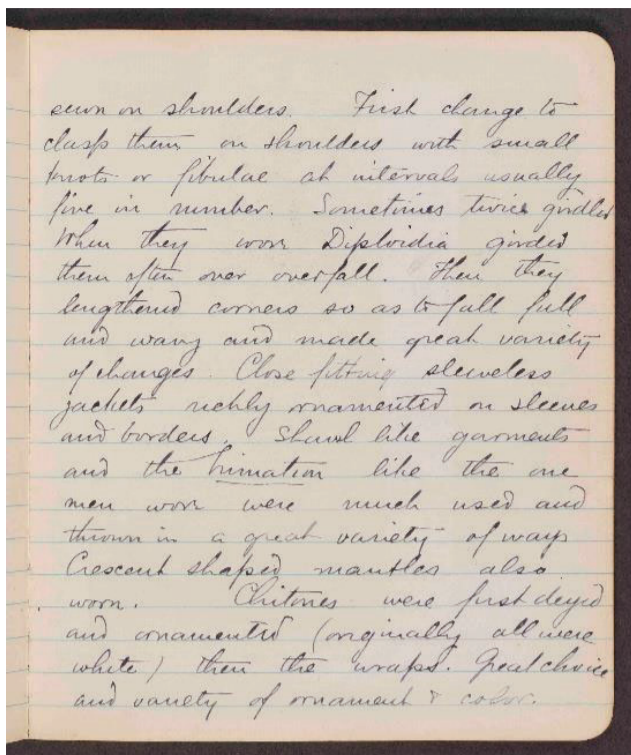 sewn on shoulders. First change to
clasp them on shoulders with small
knots or fibulae at intervals usually
five in number. Sometimes twice girdled
When they worn Diploidia girded
them often over overfall. Then they
lengthened corners so as to fall full
and wavy and made great variety
of changes. Close fitting sleeveless
jackets richly ornamented on sleeves
and borders. Shawl like garments
and the himation like the one
men worn were much used and
thrown in a great variety of ways
Crescent shaped mantles also
worn. Chitones were first deyed
and ornamented (originally all were
white) then the wraps. Great choice
and variety of ornament & color.